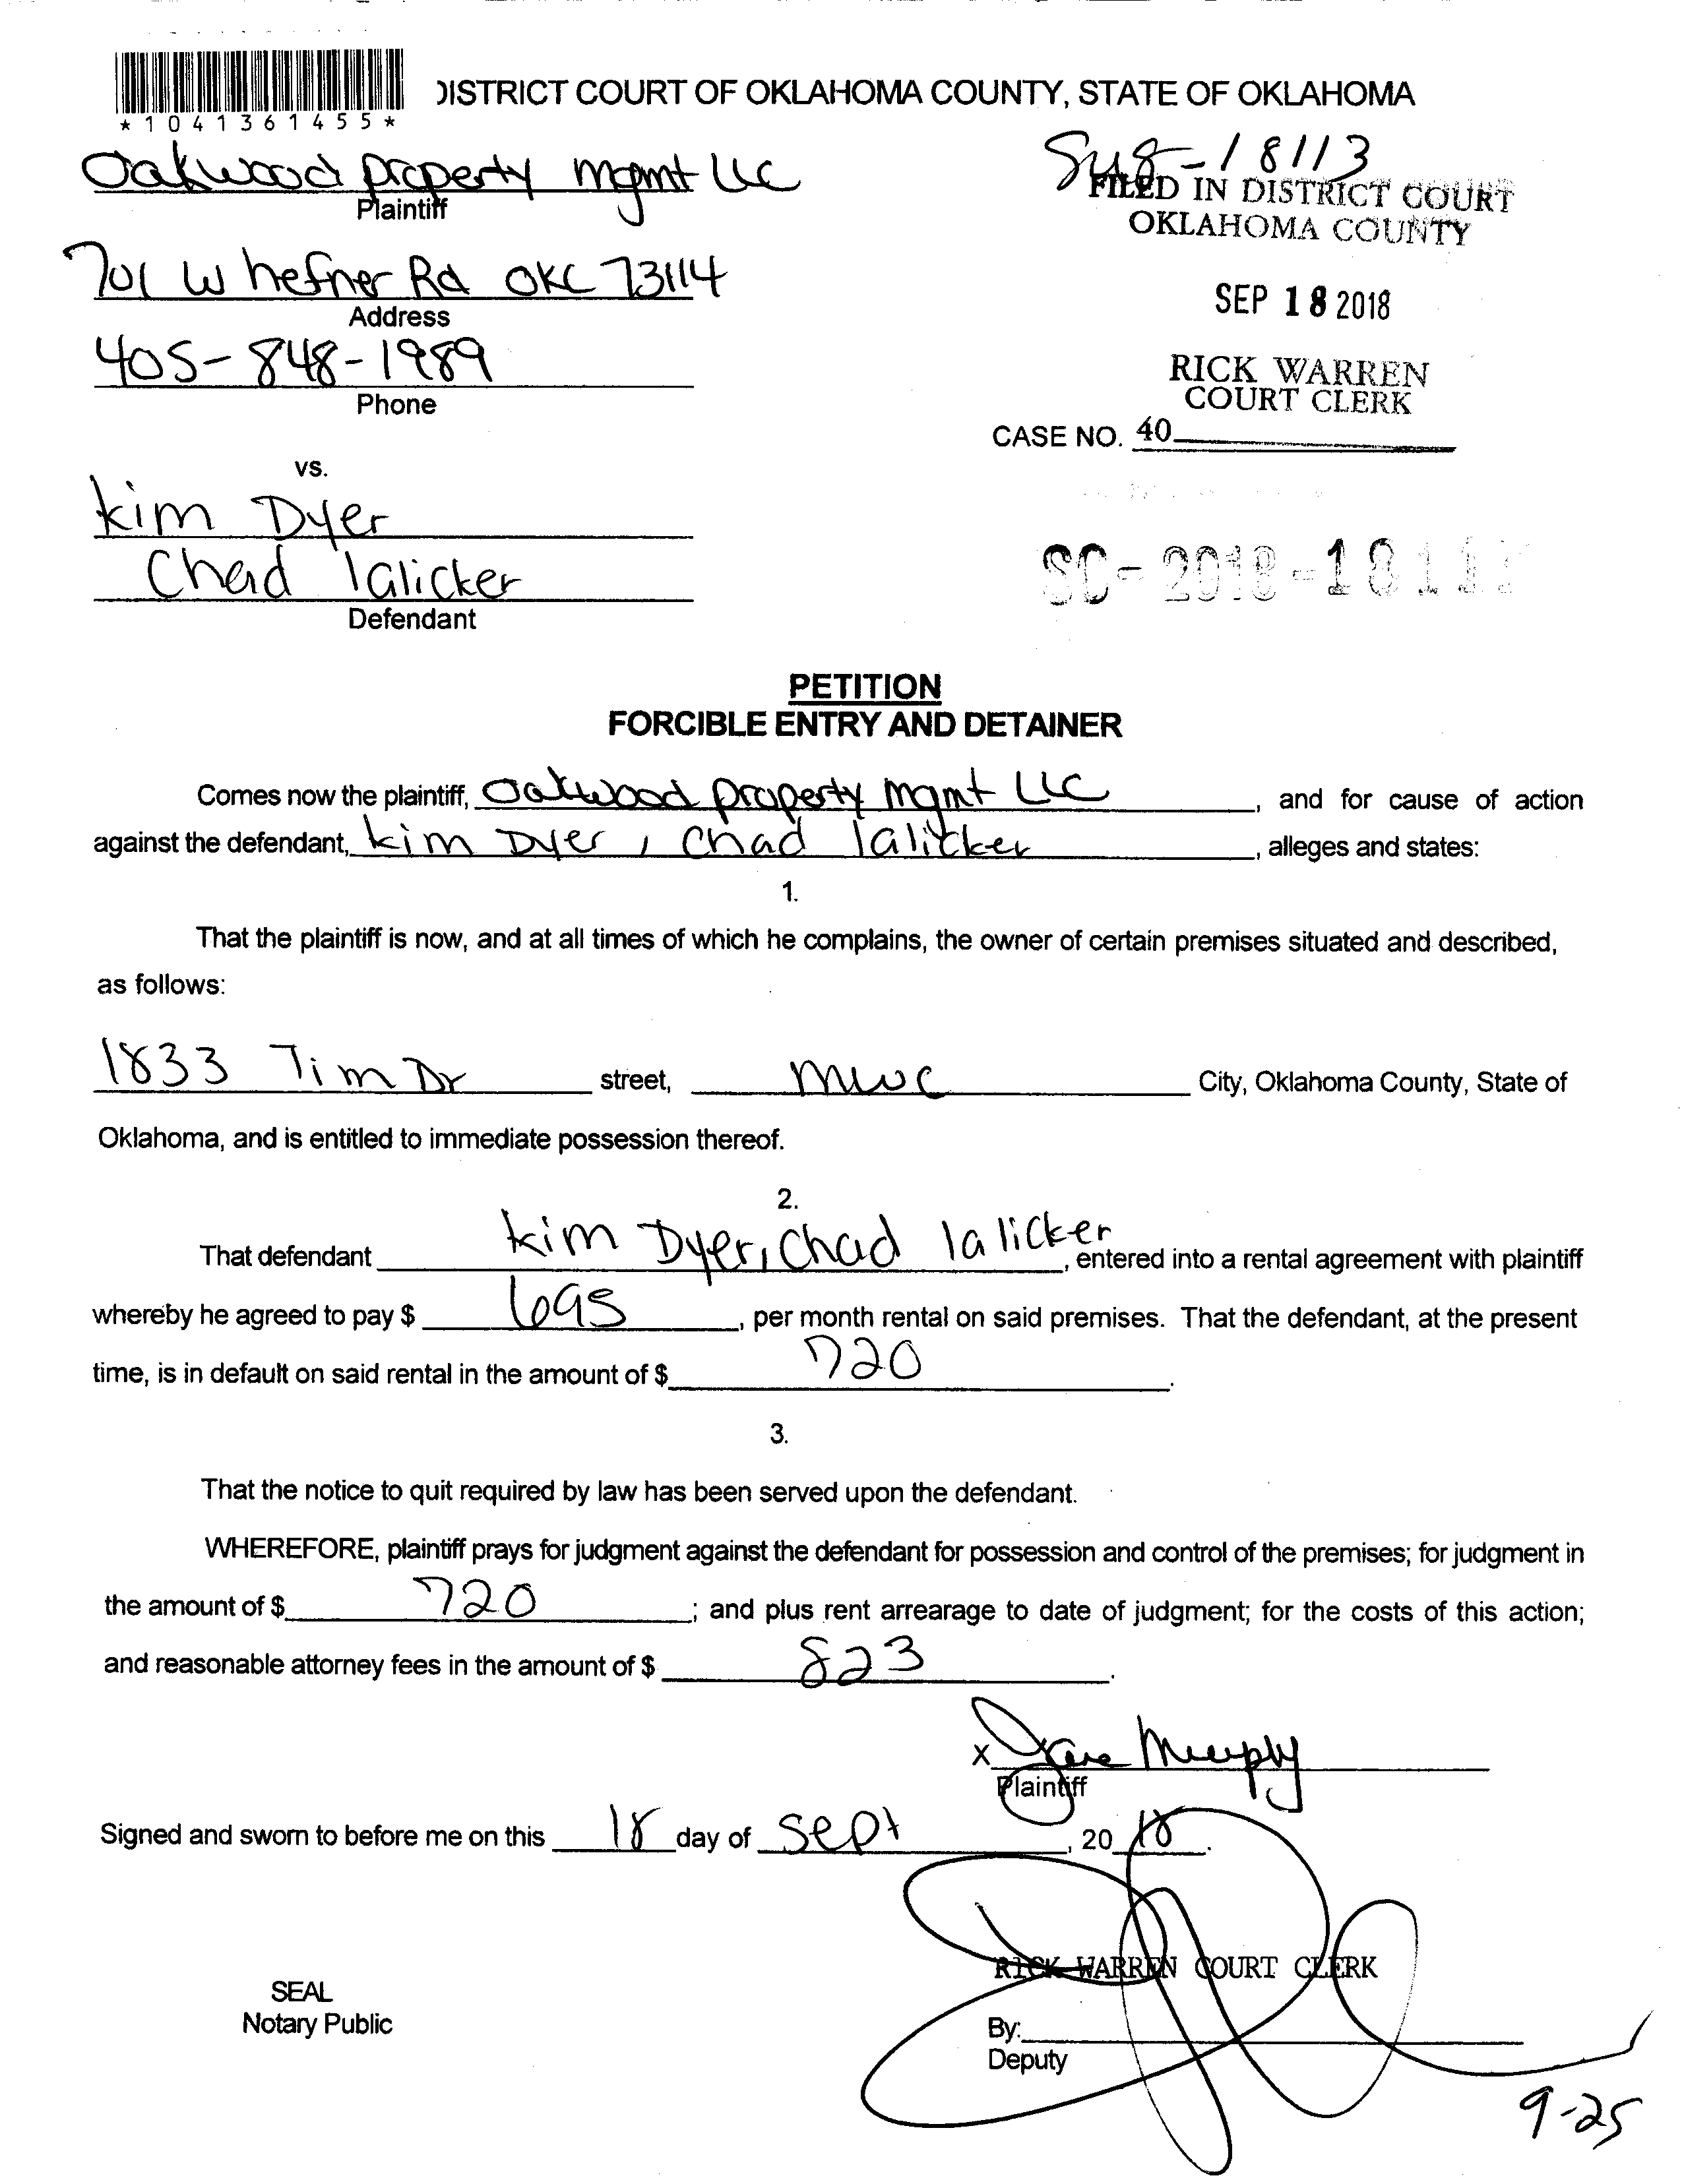 *1041361455*
DISTRICT COURT OF OKLAHOMA COUNTY, STATE OF OKLAHOMA
Oakwood property mgmt LLC
Plaintiff
18113
FILED IN DISTRICT COURT
OKLAHOMA COUNTY
701 W hefner Rd OKC 73114
Address
SEP 18 2018
405-848-1989
Phone
RICK WARREN
COURT CLERK
CASE NO. 40
vs.
Kim Dyer
Chad lalicker
Defendant
SC-2018-
PETITION
FORCIBLE ENTRY AND DETAINER
Comes now the plaintiff, Oakwood property mgmt LLC, and for cause of action
against the defendant, Kim Dyer, Chad lalicker, alleges and states:
1.
That the plaintiff is now, and at all times of which he complains, the owner of certain premises situated and described,
as follows:
1833 Tim Dr street, mwc City, Oklahoma County, State of
Oklahoma, and is entitled to immediate possession thereof.
2.
That defendant Kim Dyer, Chad lalicker, entered into a rental agreement with plaintiff
whereby he agreed to pay $ 695, per month rental on said premises. That the defendant, at the present
time, is in default on said rental in the amount of $ 720.
3.
That the notice to quit required by law has been served upon the defendant.
WHEREFORE, plaintiff prays for judgment against the defendant for possession and control of the premises; for judgment in
the amount of $ 720; and plus rent arrearage to date of judgment; for the costs of this action;
and reasonable attorney fees in the amount of $ 823.
X Murphy
Plaintiff
Signed and sworn to before me on this 18 day of Sept, 20 18.
RICK WARREN COURT CLERK
SEAL
Notary Public
By:
Deputy
9-25